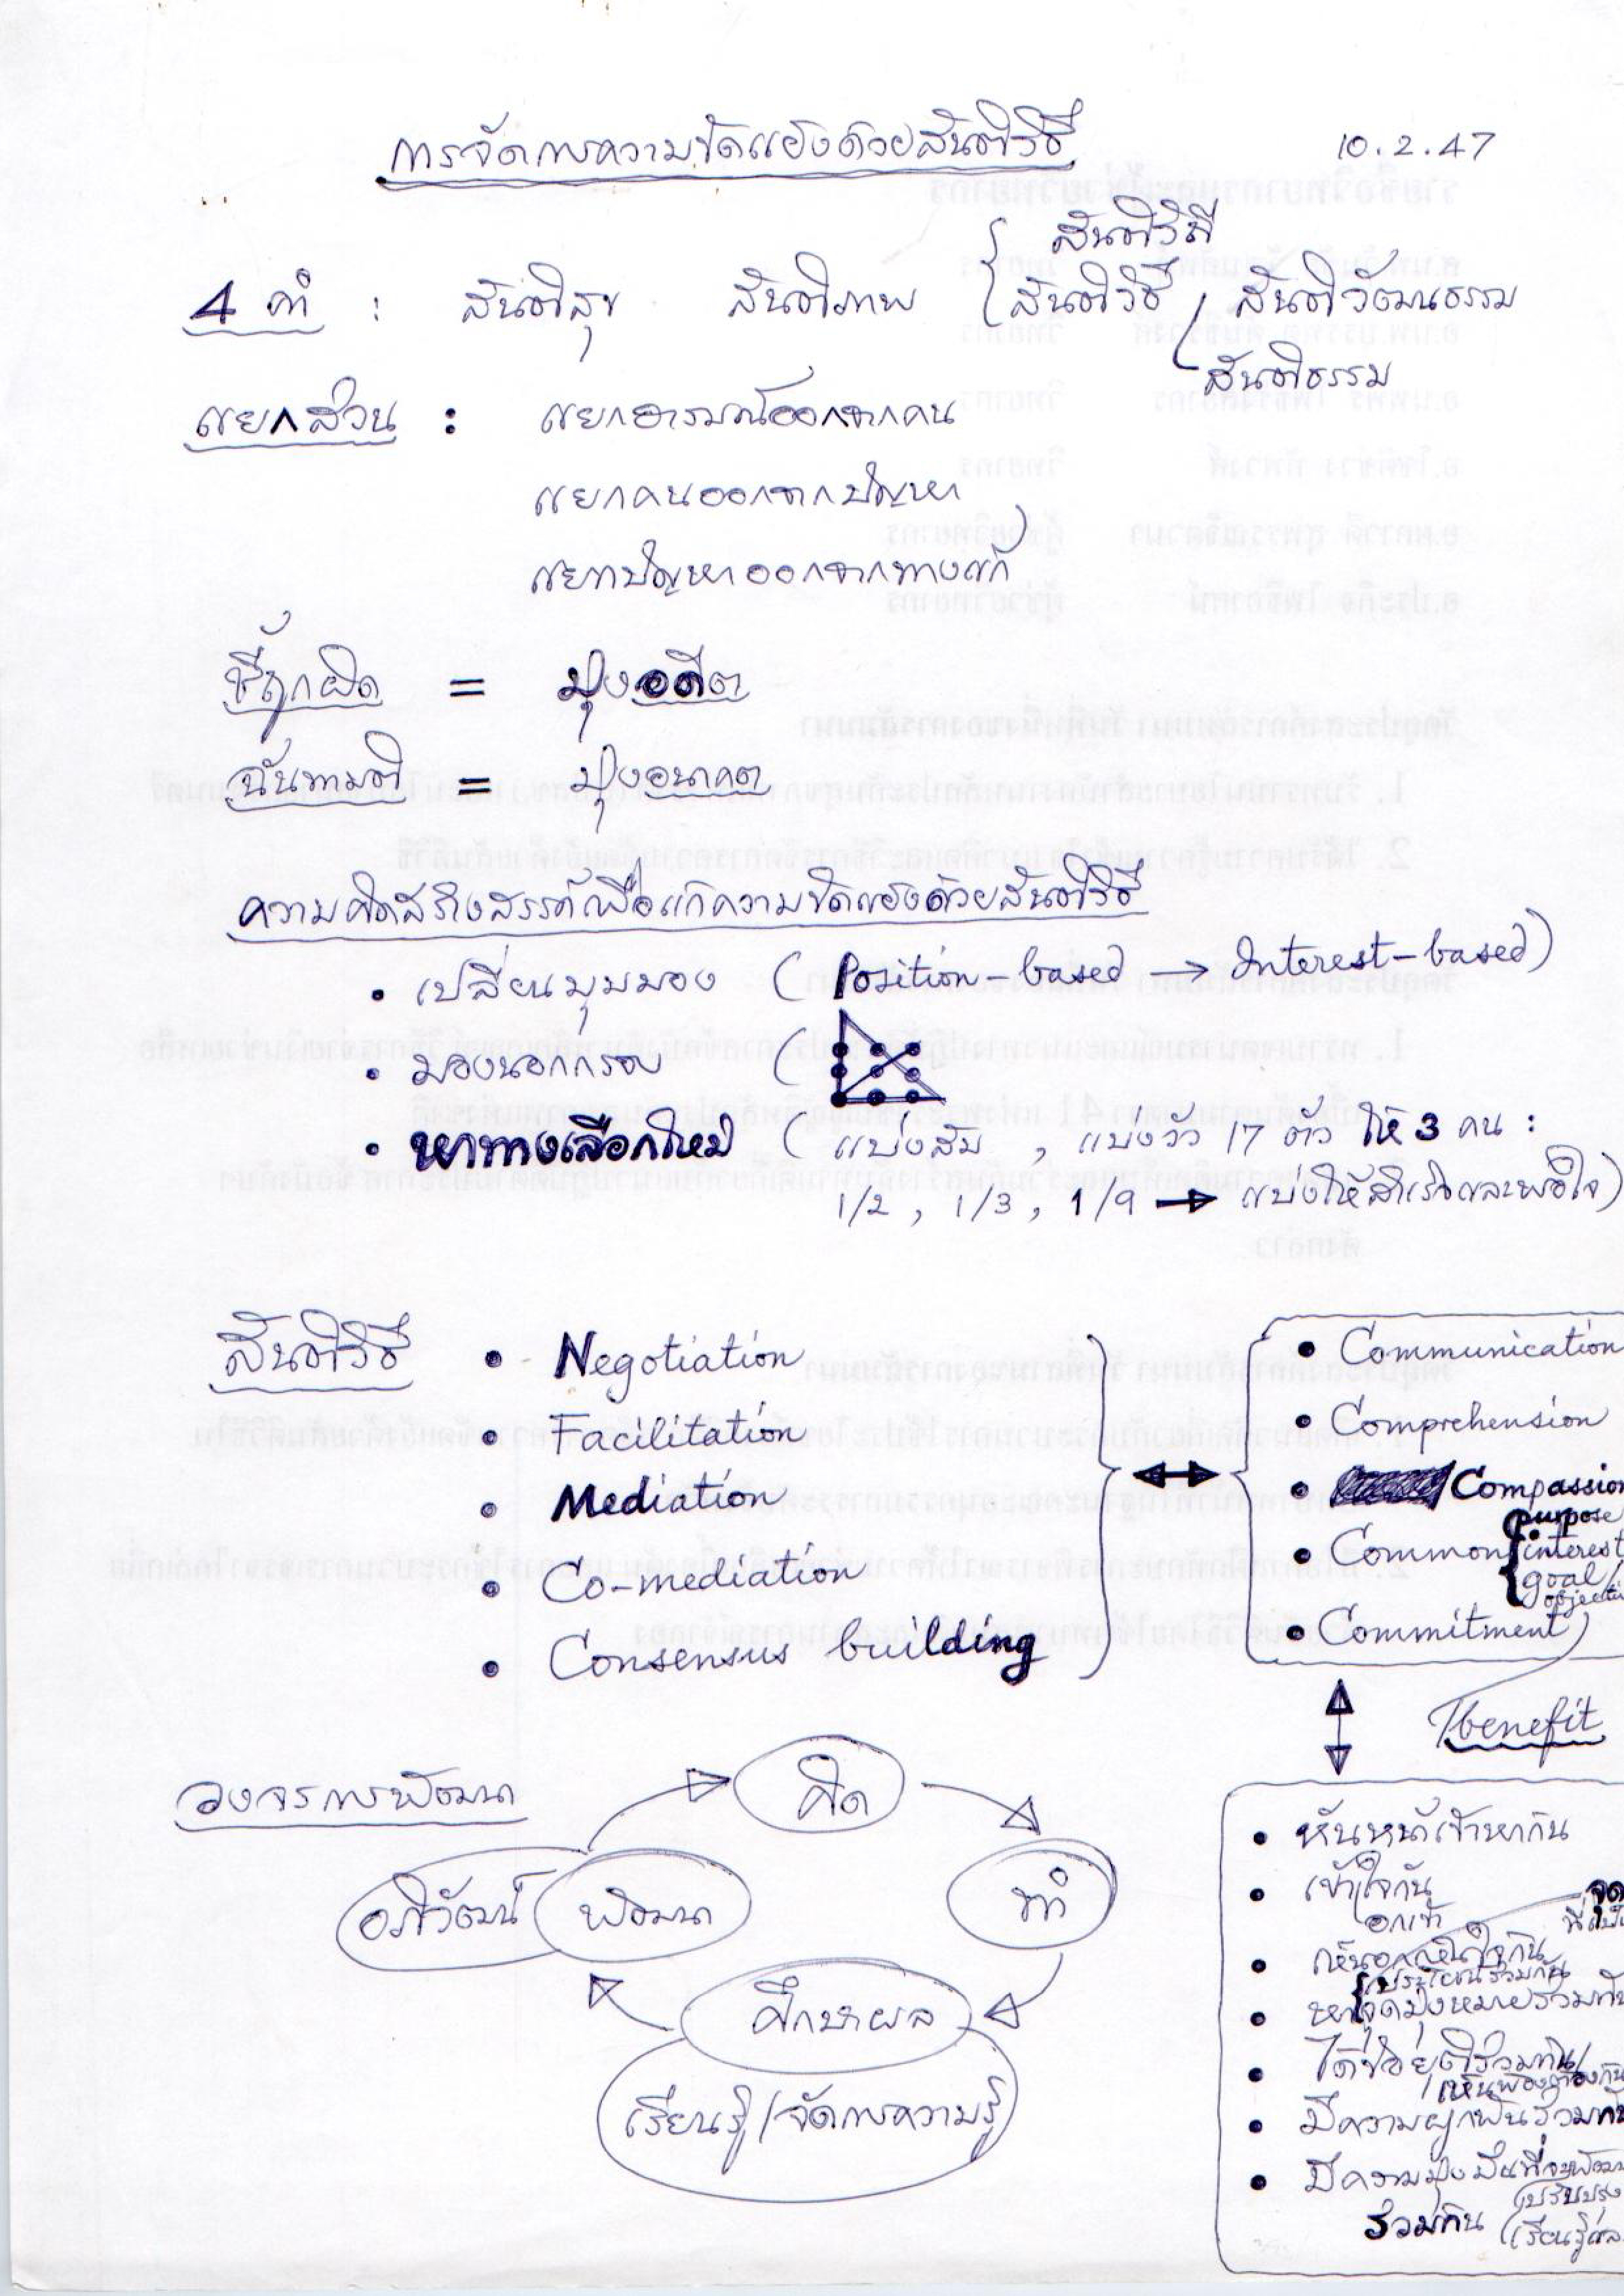 การจัดการความขัดแย้งด้วยสันติวิธี
10.2.47
สันติวิถี
4 คำ : สันติสุข สันติภาพ สันติวิธี, สันติวัฒนธรรม
สันติธรรม
แยกส่วน : แยกอารมณ์ออกจากคน
แยกคนออกจากปัญหา
แยกปัญหาออกจากทางแก้
ชี้ถูกผิด = มุ่งอดีต
ฉันทามติ = มุ่งอนาคต
ความคิดสร้างสรรค์เพื่อแก้ความขัดแย้งด้วยสันติวิธี
• เปลี่ยนมุมมอง (Position-based → Interest-based)
• มองนอกกรอบ (
• หาทางเลือกใหม่ (แบ่งส้ม, แบ่งวัว 17 ตัว ให้ 3 คน :
1/2, 1/3, 1/9 → แบ่งให้สำเร็จและพอใจ)
สันติวิธี
• Negotiation
• Facilitation
• Mediation
• Co-mediation
• Consensus building
• Communication
• Comprehension
• Compassion
• Common
purpose
interest
goal/
• Commitment
benefit
วงจรการพัฒนา
คิด
ทำ
ศึกษาผล
เรียนรู้/จัดการความรู้
พัฒนา
อภิวัฒน์
• หันหน้าเข้าหากัน
• เข้าใจกัน
• เห็นอกเห็นใจกัน
ประโยชน์ร่วมกัน
• หาจุดมุ่งหมายร่วมกัน
• ได้ข้อยุติร่วมกัน/
เห็นพ้องต้องกัน
• มีความผูกพันร่วมกัน
• มีความมุ่งมั่นที่จะ
ปรับปรุง
ร่วมกัน